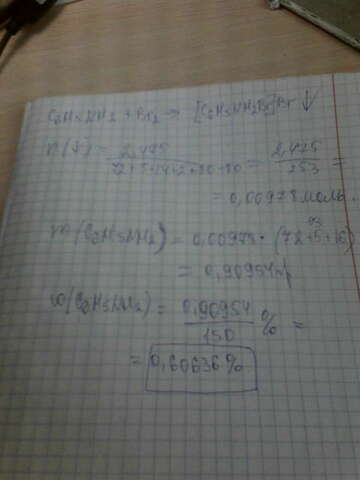 C6H5NH2 + Br2 → [C6H5NH2Br]Br ↓
n(↓) = 2,475 / 72+5+14+2+80+80 = 2,475 / 253 =
= 0,00978 моль.
m(C6H5NH2) = 0,00978 · (72+5+16)
93
= 0,90954 гр
ω(C6H5NH2) = 0,90954 / 150 % =
= 0,60636 %